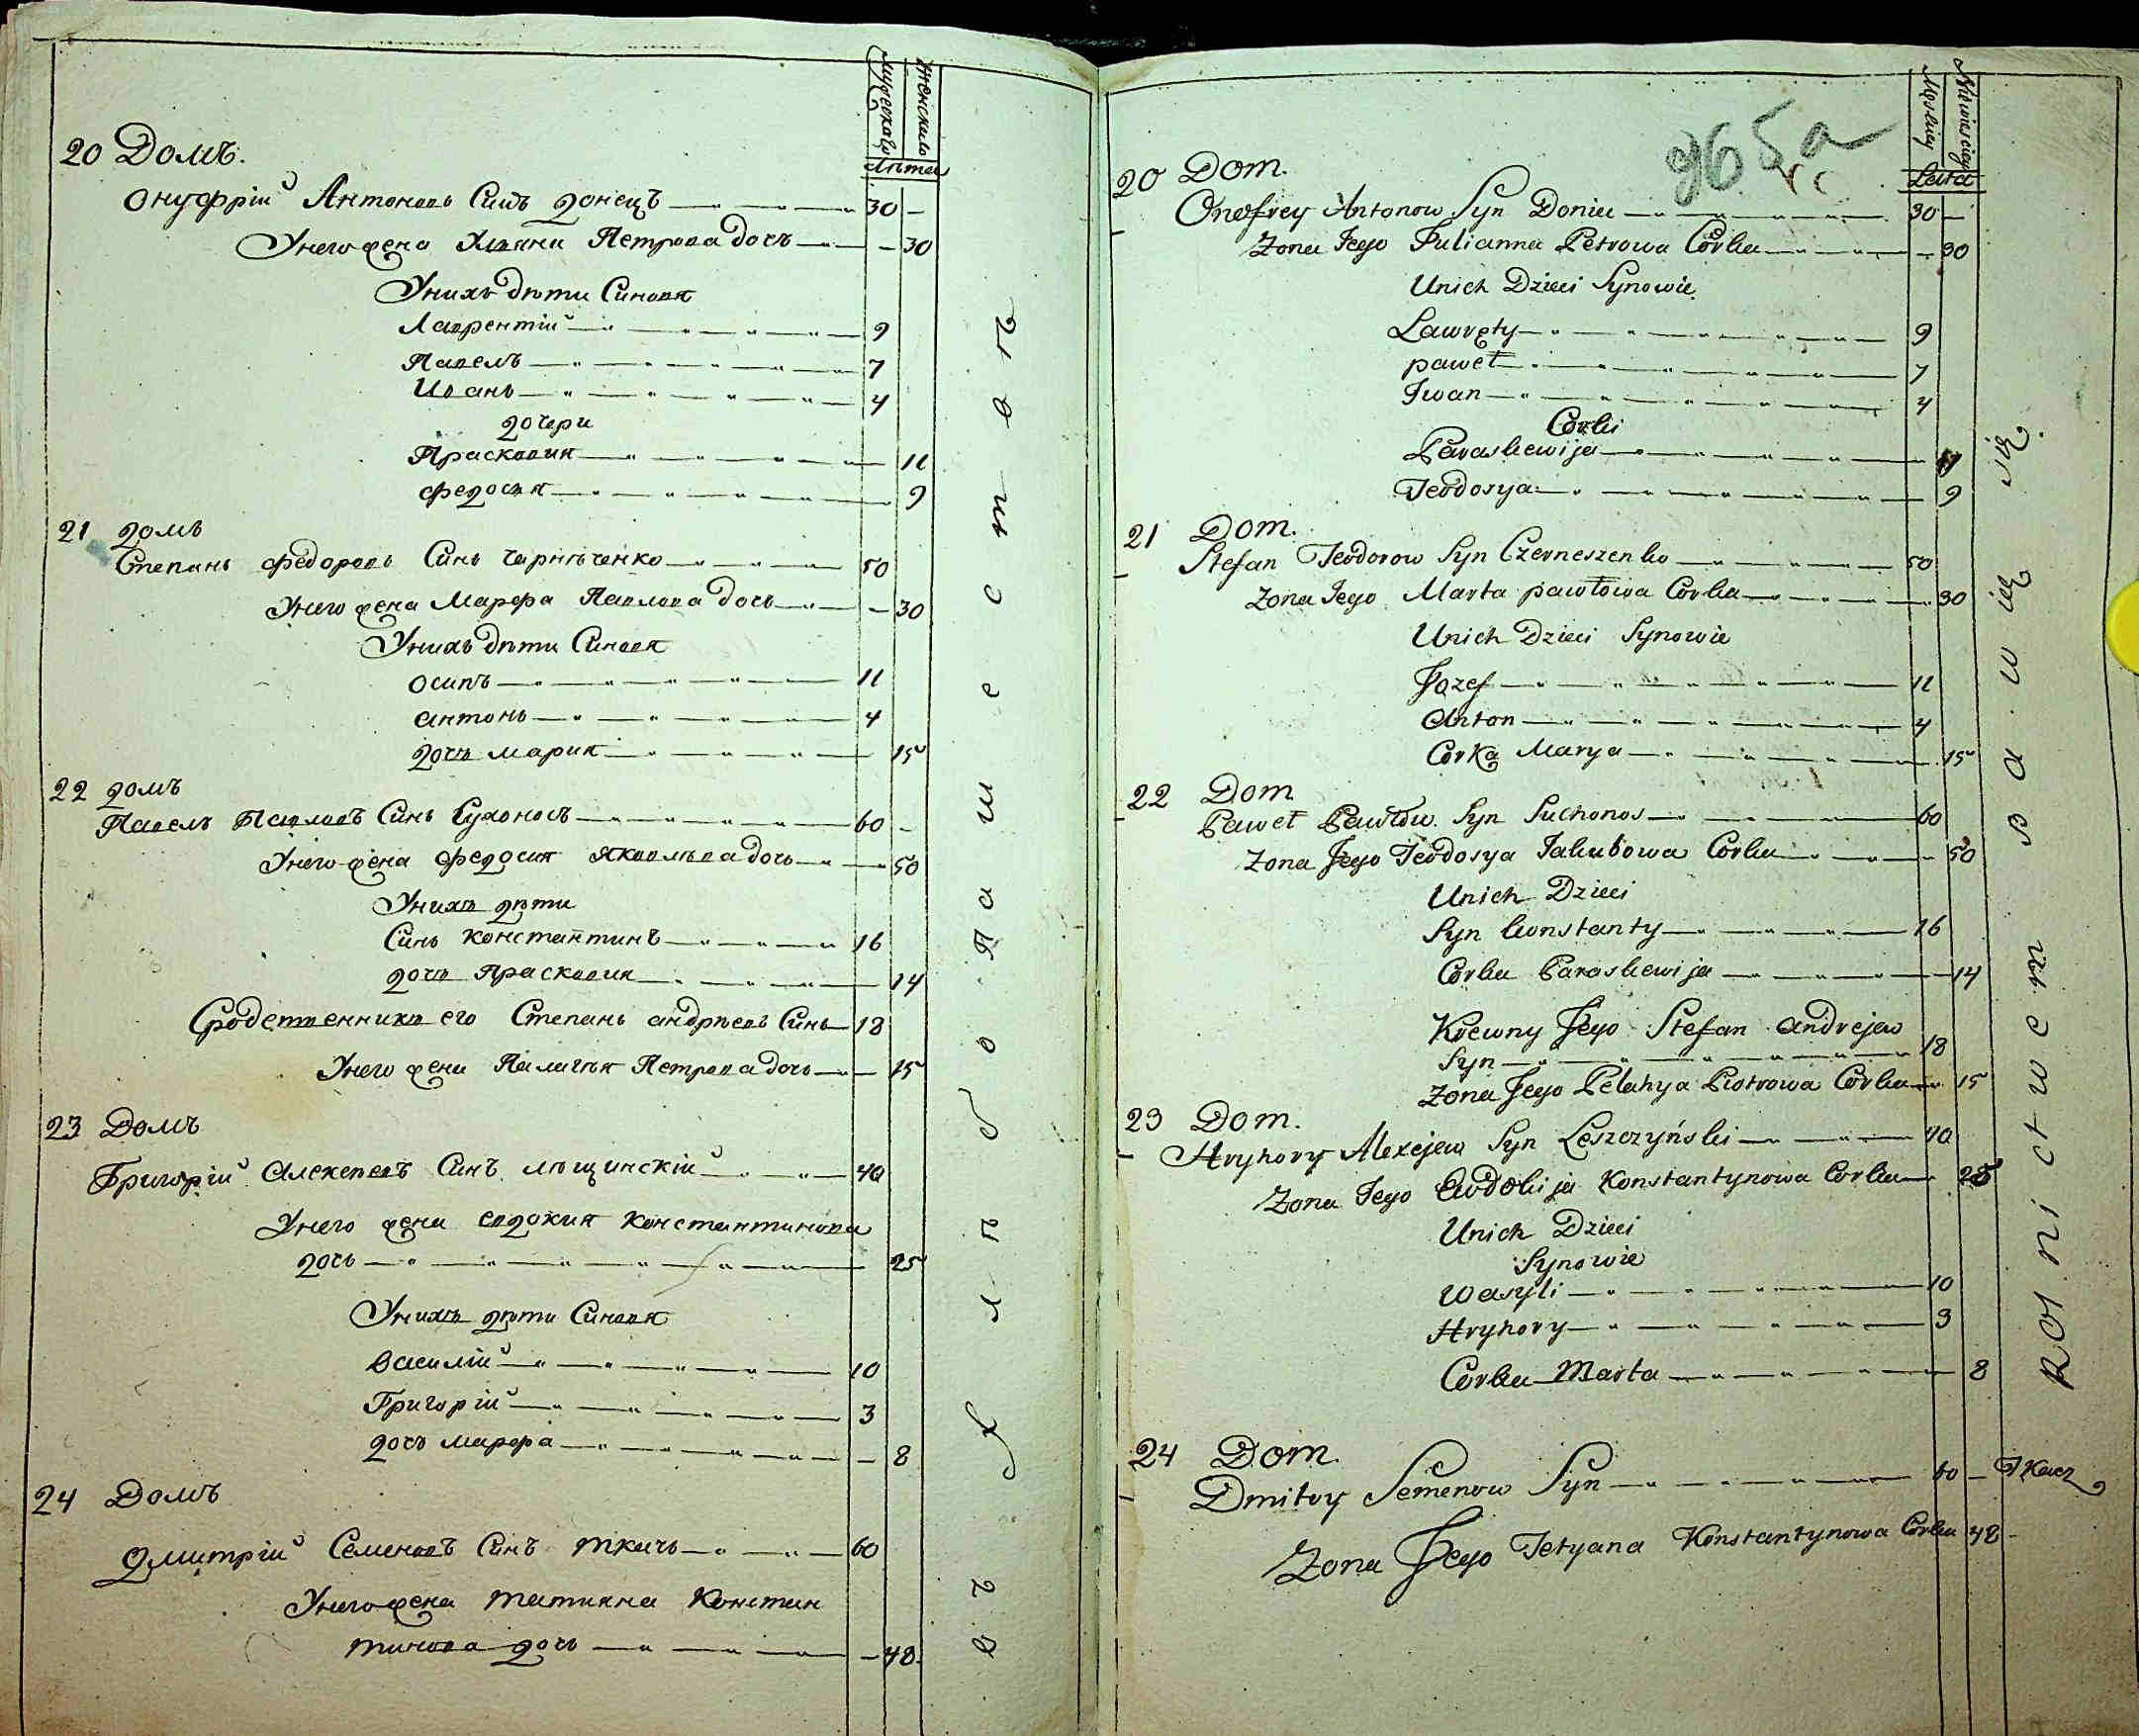 мужескаго
женскаго
лѣта
20 Домъ.
Онуфрій Антоновъ Синъ Донецъ 30 –
Унего жена Уляна Петрова дочъ – 30
Унихъ дѣти Синовя
Лаврентій 9
Павелъ 7
Иванъ 4
дочери
Прасковия 11
Федосия 9
21 домъ
Степанъ Федоровъ Синъ Чернѣченко 50
Унего жена Марфа Павлова дочь – 30
Унихъ дѣти Синовя
осипъ 11
антонъ 4
дочъ мария 15
22 домъ
Павелъ Павловъ Синъ Сухоносъ 60 –
Унего жена Федосия Яковлева дочь 50
Унихъ дѣти
Синъ Константинъ 16
дочъ Прасковия 14
Сродственникъ его Степанъ андрѣевъ Синъ 18
Унего жена Палагѣя Петрова дочь 15
23 Домъ
Григорій Алекѣевъ Синъ лѣщинскій 40
Унего жена евдокия константинова
дочь 25
Унихъ дѣти Синовя
Василій 10
Григорій 3
дочъ марфа – 8
24 Домъ
Дмитрій Семеновъ Синъ ткачъ 60
Унего жена татияна Констан
тинова дочь – 48
965a
Męskiey
Niewiesciey
Lata
20 Dom.
Onofrey Antonow Syn Doniec 30 –
Zona Jego Julianna Petrowa Córka – 30
Unich Dzieci Synowie
Lawręty 9
paweł 7
Iwan 4
Corki
Paraskewija 11
Teodosya 9
21 Dom.
Stefan Teodorow Syn Czerneszenko 50
Zona Jego Marta pawłowa Corka 30
Unich Dzieci Synowie
Jozef 11
Anton 4
Corka Marya 15
22 Dom
Paweł Pawłow. Syn Suchonos 60
Zona Jego Teodosya Jakubowa Corka 50
Unich Dzieci
Syn Konstanty 16
Corka Paraskewija 14
Krewny Jego Stefan Andrejew
Syn 18
Zona Jego Pelahya Piotrowa Corka 15
23 Dom.
Hryhory Alexejew Syn Leszczyński 40
Zona Jego Ewdokija Konstantynowa Corka 25
Unich Dzieci
Synowie
Wasyli 10
Hryhory 3
Corka Marta 8
24 Dom.
Dmitry Semenow Syn 60 – Tkacz
Zona Jego Tetyana Konstantynowa Corka 48
Rolnictwem Bawią się.